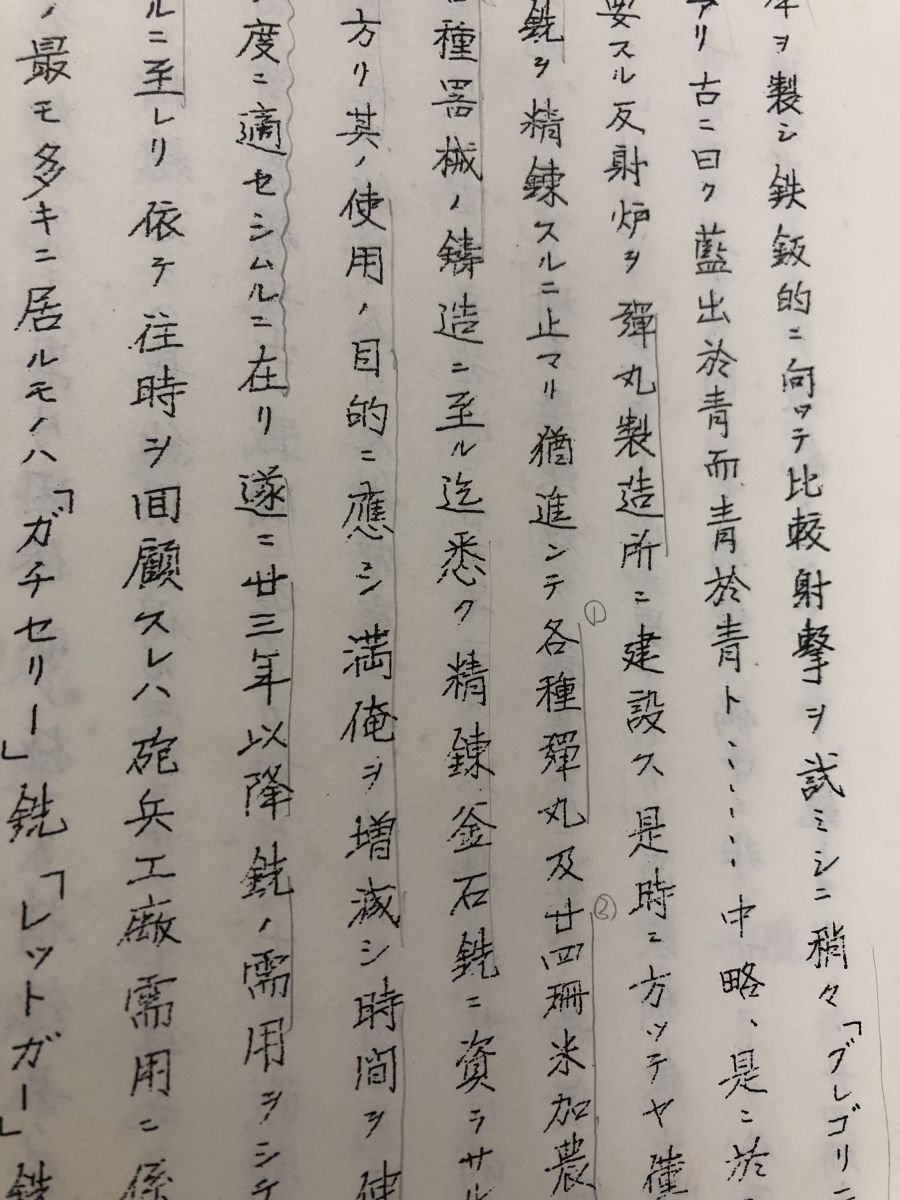 ヲ製シ鉄鈑的ニ向ッテ比較射撃ヲ試ミシニ稍々「グレゴリニ
アリ古ニ曰ク藍出於青而青於青ト：：：：中略、是ニ於
要スル反射炉ヲ彈丸製造所ニ建設ス是時ニ方ッテヤ僅
銑ヲ精錬スルニ止マリ猶進ンテ①各種彈丸及②廿四珊米加農
各種器械ノ鋳造ニ至ル迄悉ク精錬釜石銑ニ資ラサル
方リ其ノ使用ノ目的ニ應シ満俺ヲ増減シ時間ヲ使
度ニ適セシムルニ在リ遂ニ廿三年以降銑ノ需用ヲシテ
ルニ至レリ依テ往時ヲ回顧スレハ砲兵工廠需用ニ係
最モ多キニ居ルモノハ「ガチセリー」銑「レットガー」銑